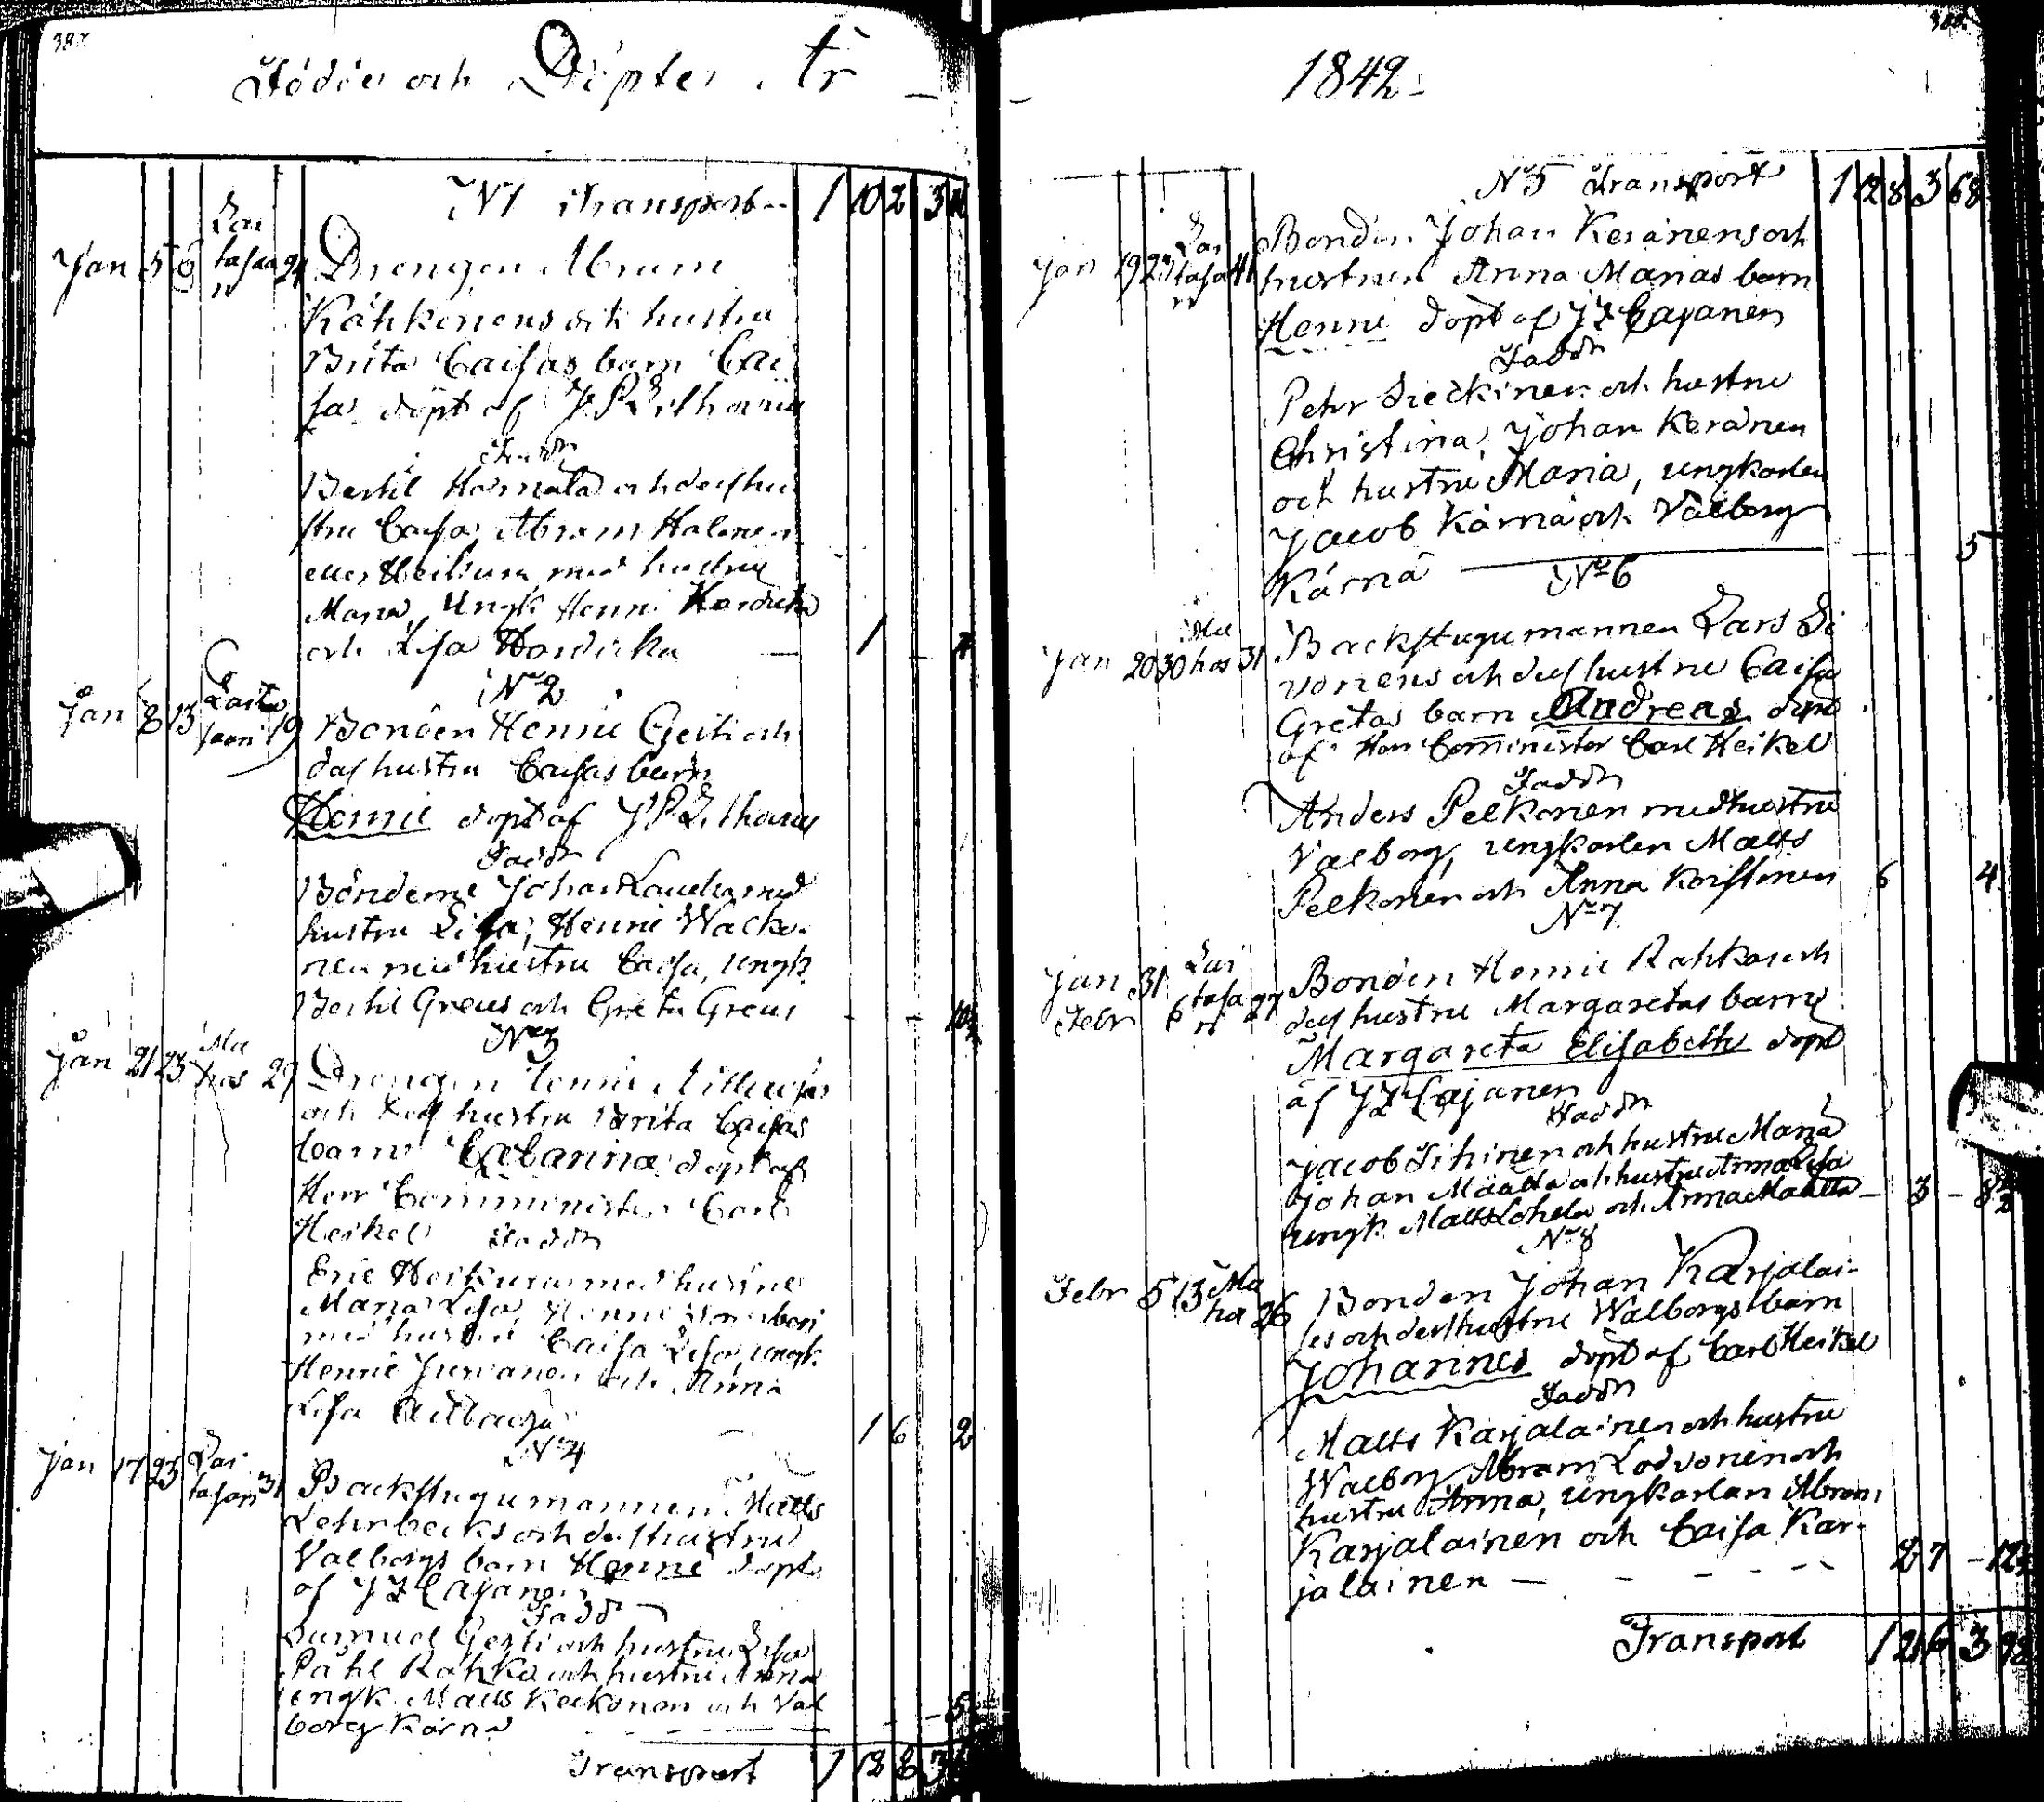 Födde och Döpte År
N1 Transport 1 10 2 3
Lai
Jan 5 6 tasaa 24 Drengen Abram
n
Kähkönens och hustru
Brita Caisas barn Cai
sa döpt af J. P. Lithovius
Fadd
Bertil Harnala och dess hu
stru Caisa, Abram Halonen
eller Heikura med hustru
Maria, Ungk Henric Hardicka
och Lisa Hardicka 1
No 2
Jan 8 13 Laita
saari 19 Bonden Henric Gesti och
dess hustru Caisas barn
Henric döpt af J P Lithovius
Fadd
Bönderne Johan Laucka med
hustru Lisa, Henric Wacku
nen med hustru Caisa, ungk.
Bertil Greus och Greta Greus
No 3
Jan 21 23 Mu
hos 29 Drengen
och dess hustru Brita Caisas
barn Catharina döpt af
Herr Comminister Carl
Heikel Fadd
Eric Heikura med hustru
Maria Lisa, Henric
med hustru Caisa Lisa, ungk.
Henric Juvanen och Anna
Lisa 1 6 2
No 4
Jan 17 23 Lai
tasaari 31 Backstugumannen Matts
Lehrbecks och dess hustru
Valborgs barn Henric döpt
af J Z Cajanen
Fadd
Samuel Gesti och hustru Lisa
Påhl Rahko och hustru Anna
ungk. Matts Keckonen och Val
borg Kärnä 5
Transport 1 12 8 3
1842
N5 Transport 1 12 8 3 68
Jan 19 23 Lai
tasa 41 Bonden Johan Keränens och
hustrus Anna Marias barn
Henric döpt af J Z Cajanen
Fadd
Petr Sieckinen och hustru
Christina, Johan Keränen
och hustru Maria, ungkarlen
Jacob Kärnä och Valborg
Kärnä 5
No 6
Jan 20 30 Mu
hos 31 Backstugumannen Lars Si
vonens och dess hustru Caisa
Gretas barn Andreas döpt
af Herr Comminister Carl Heikel
Fadd
Anders Pelkonen med hustru
Valborg, ungkarlen Matts
Pelkonen och Anna Koistinen 6 4
No 7
Jan 31 Lai
Febr 6 tasa 27 Bonden Henric Rahkos och
dess hustru Margaretas barn
Margareta Elisabeth döpt
af J Z Cajanen
Fadd
Jacob Sihinen och hustru Maria
Johan Määttä och hustru Anna Lisa
ungk. Matts Lohela och Anna Määttä 3
No 8
Febr 5 13 Mu
hos 26 Bonden Johan Karjalai-
ses och dess hustru Walborgs barn
Johannes döpt af Carl Heikel
Fadd
Matts Karjalainen och hustru
Walborg, Abram Lodvonen och
hustru Anna, ungkarlen Abram
Karjalainen och Caisa Kar-
jalainen
Transport